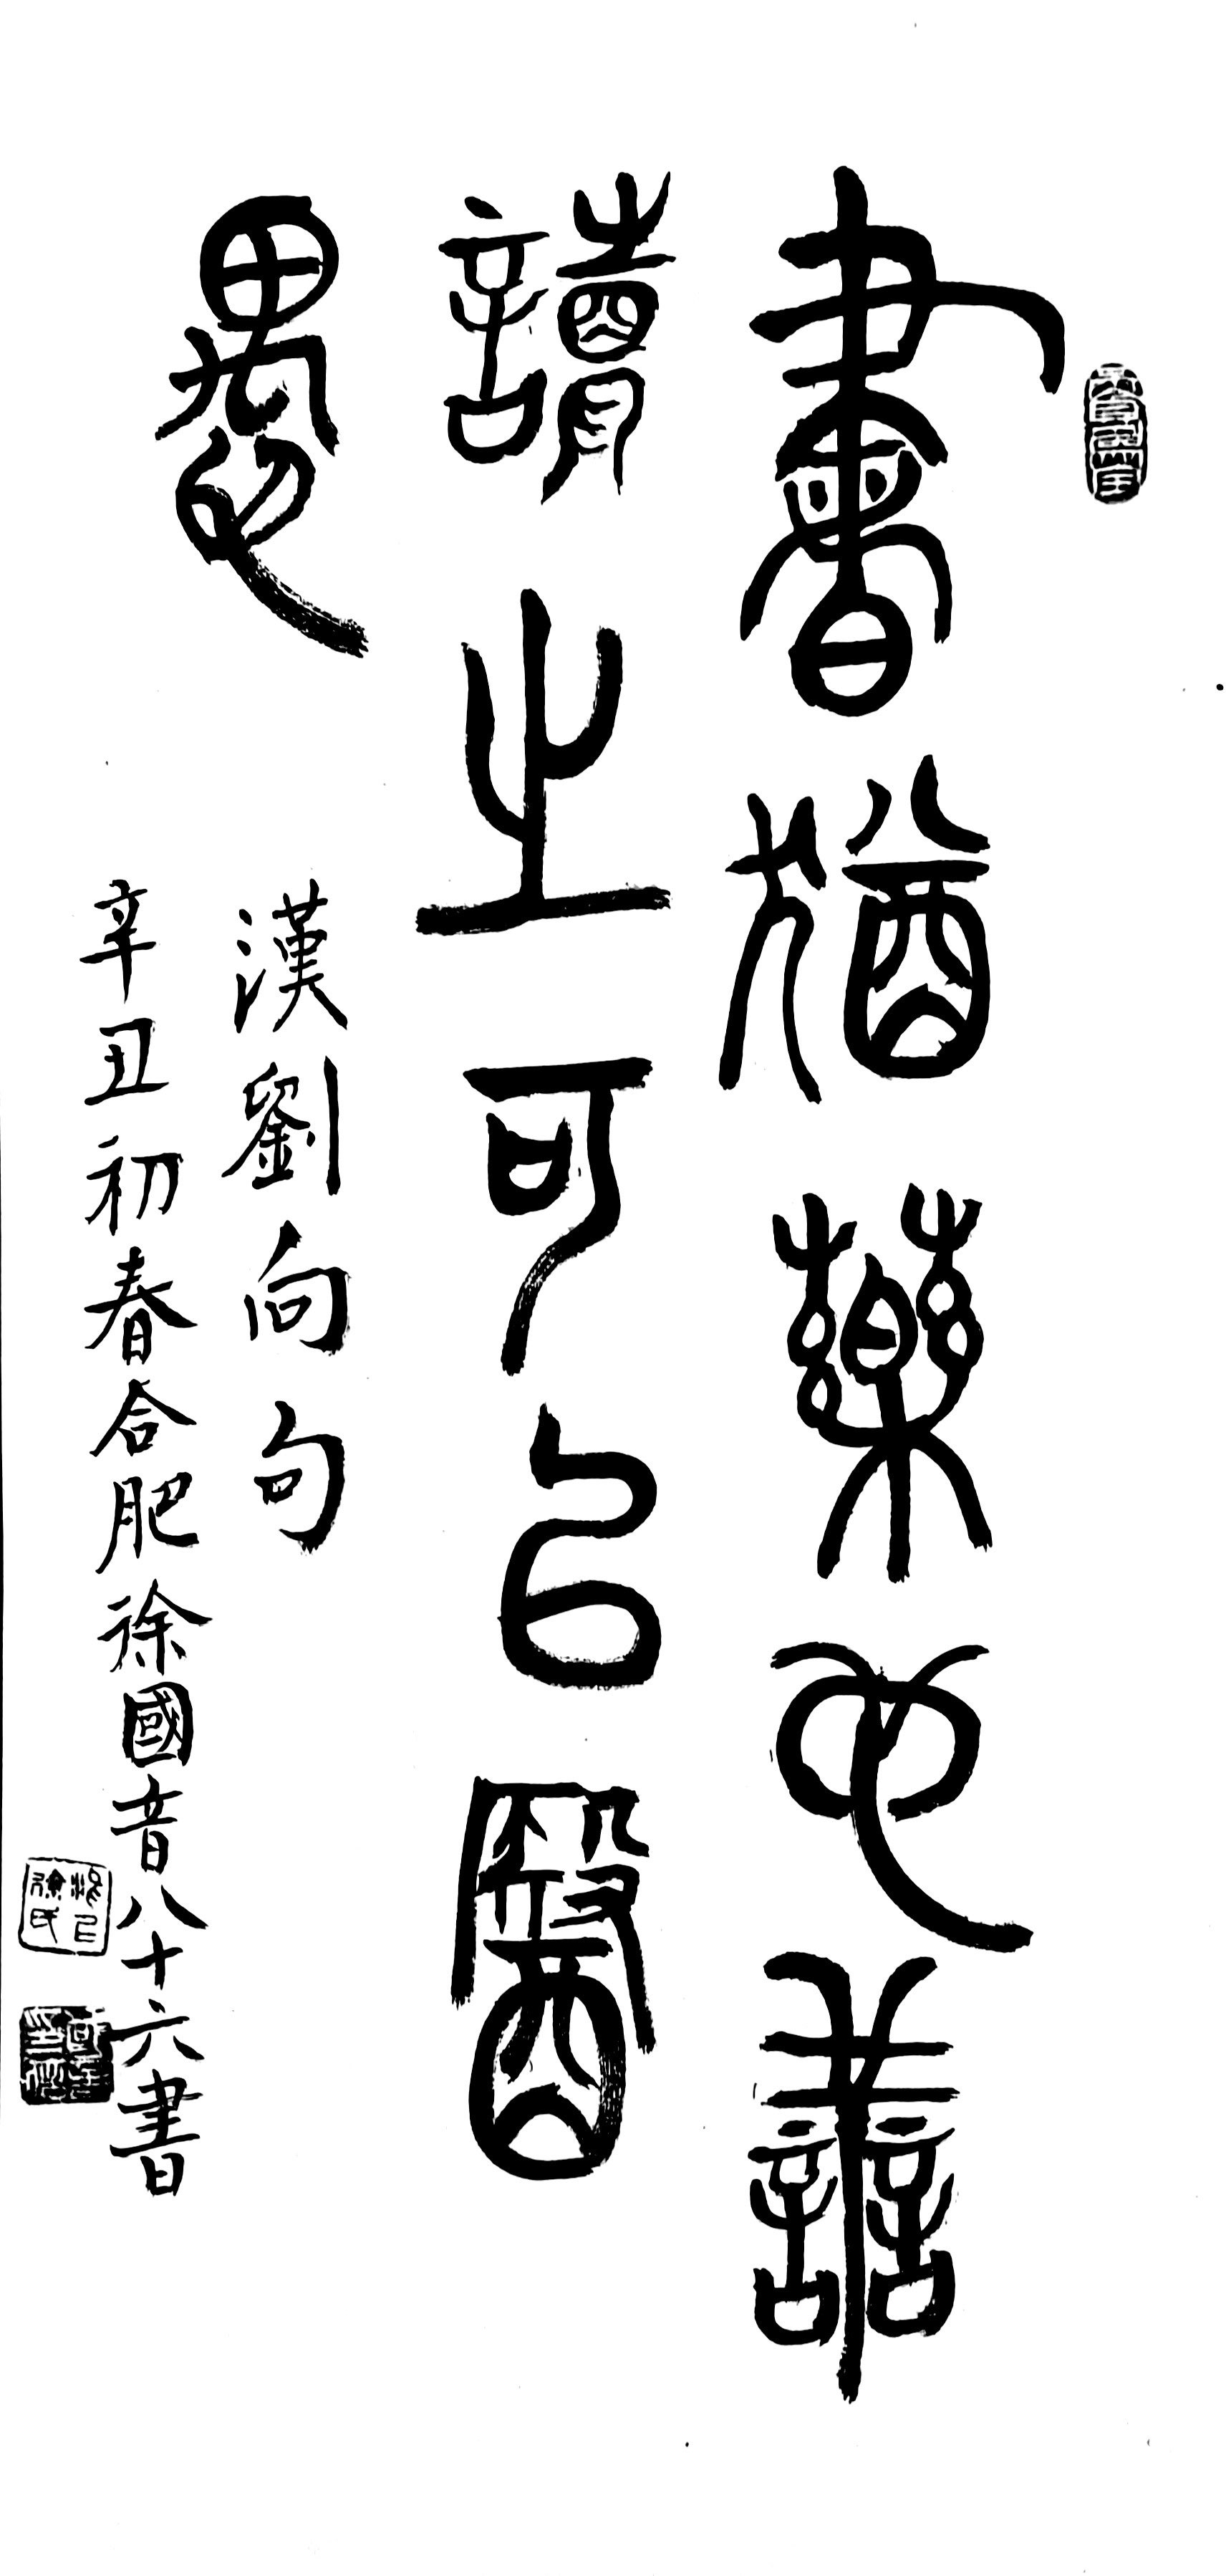 書猶藥也譱
讀之可㠯醫
愚
漢劉向句
辛丑初春合肥徐國音八十六書